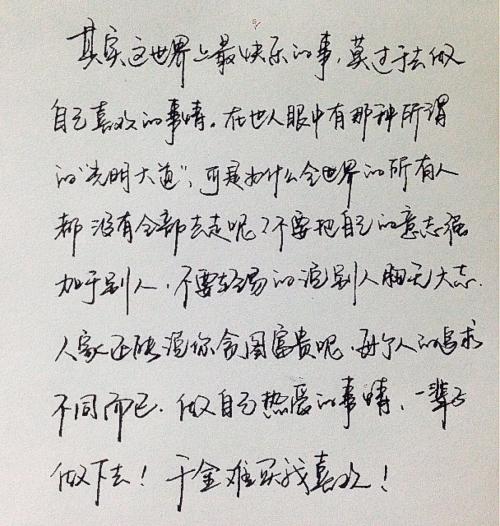 其实这世界上最快乐的事，莫过于去做
自己喜欢的事情。在世人眼中有那种所谓
的“光明大道”，可是为什么全世界的所有人
都没有全部去走呢？不要把自己的意志强
加于别人，不要轻易的说别人胸无大志.
人家还能说你贪图富贵呢，每个人的追求
不同而已. 做自己热爱的事情，一辈子
做下去！千金难买我喜欢！